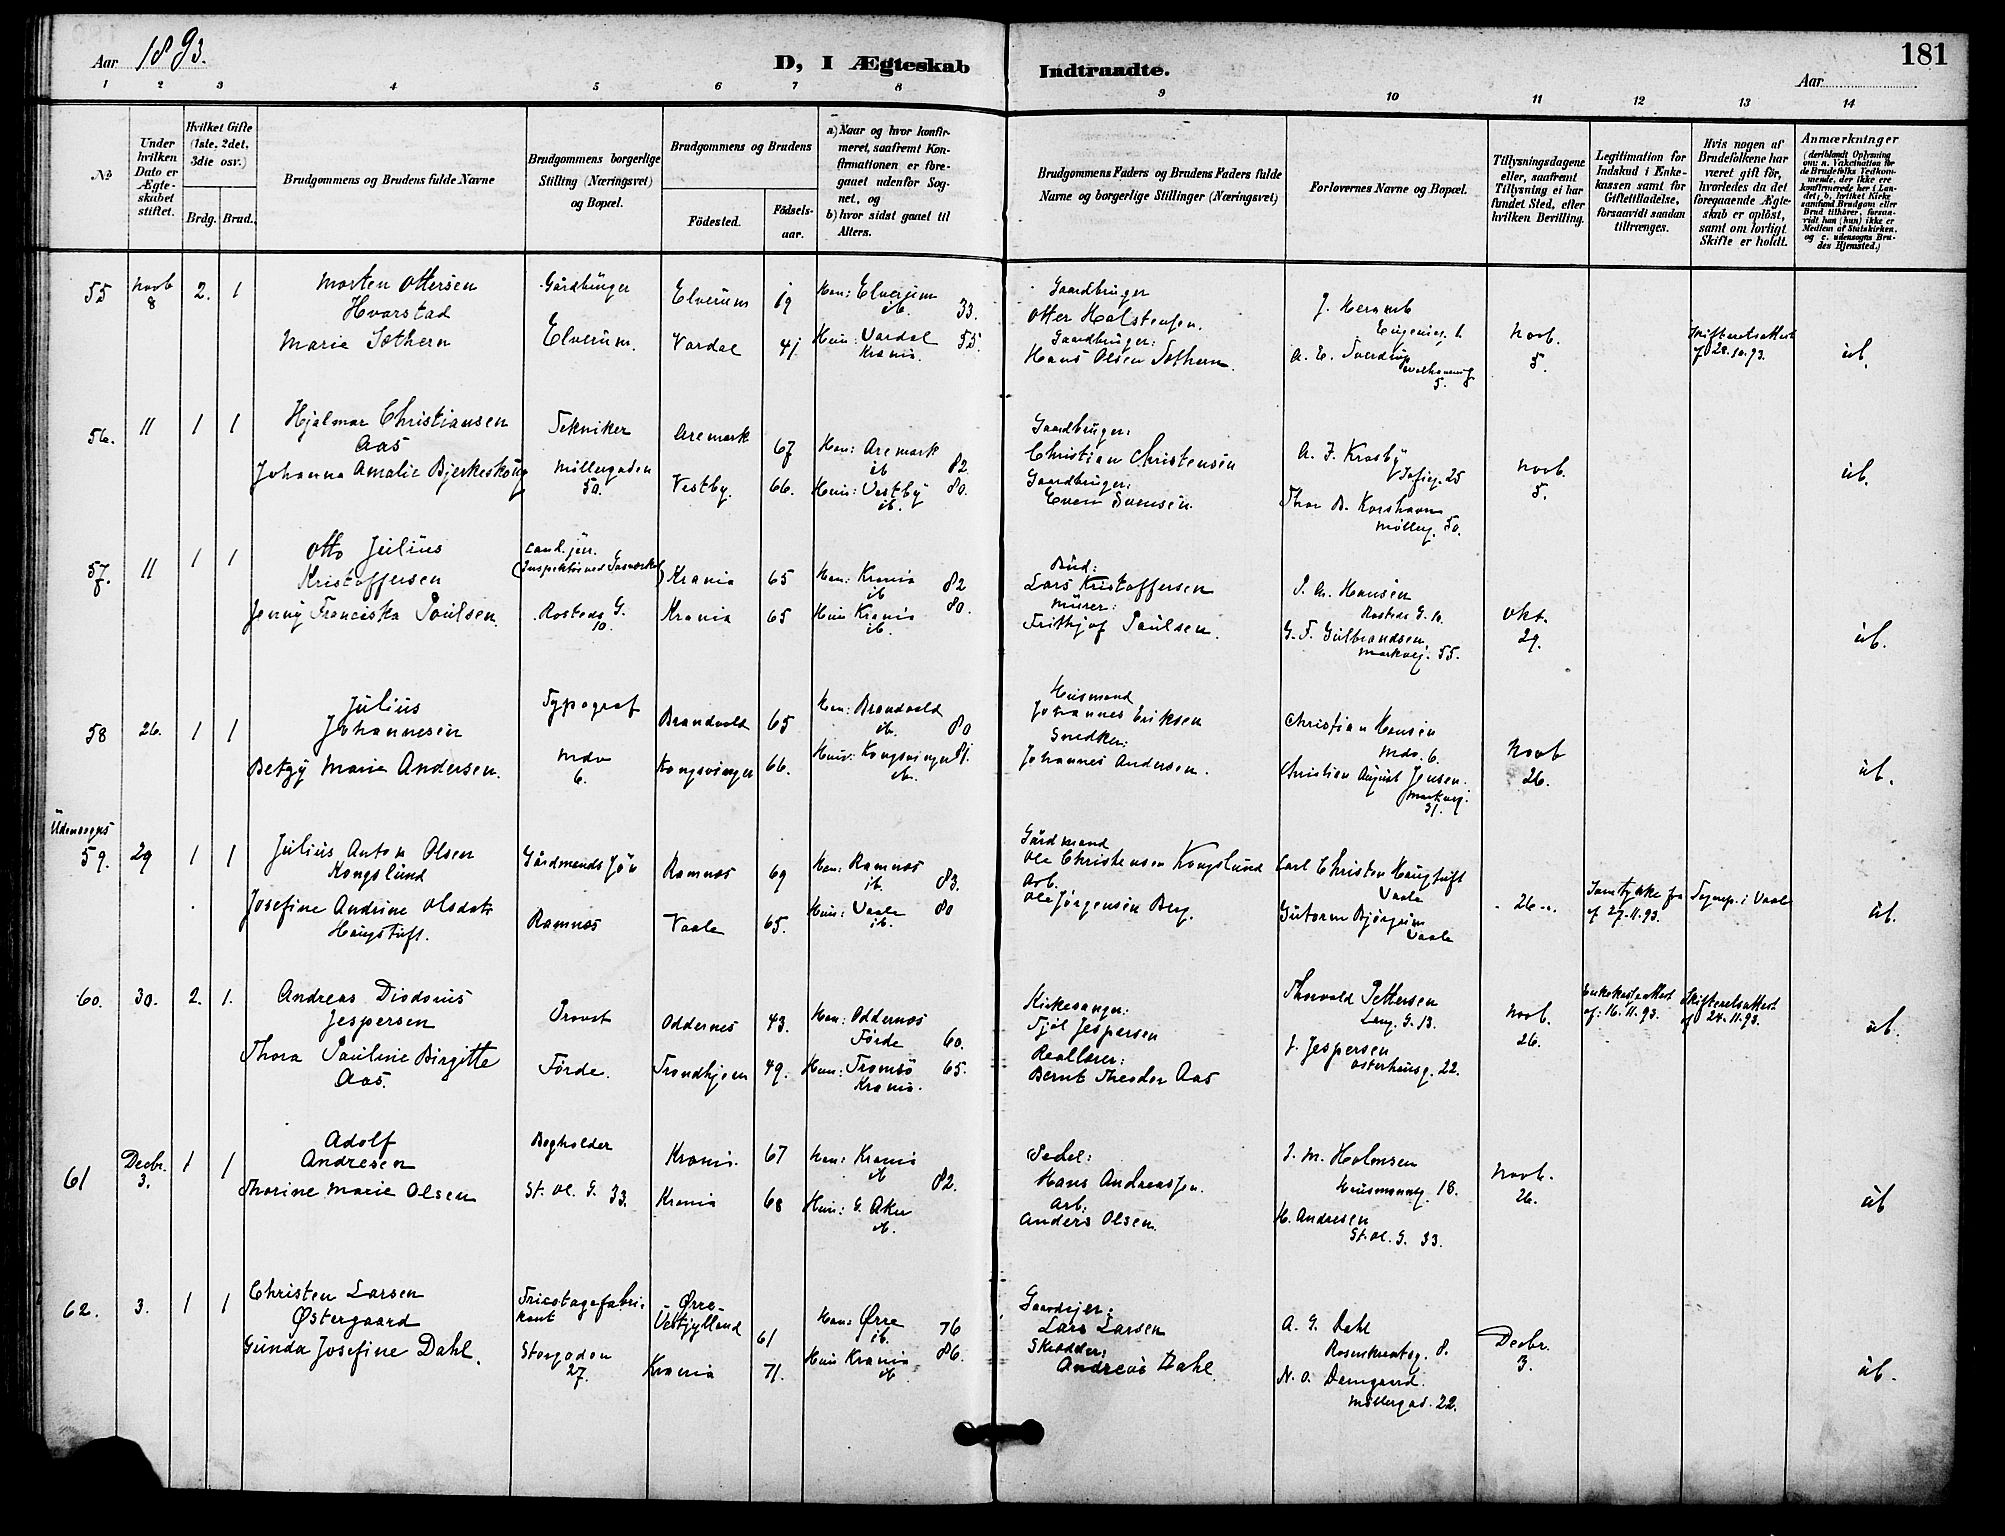 Aar 1893.
D, I Ægteskab Indtraadte.
181
Aar
1 2 3 4 5 6 7 8 9 10 11 12 13 14
No
Under hvilken Dato er Ægteskabet stiftet.
Hvilket Gifte (1ste, 2det, 3die osv.)
Brdg. Brud.
Brudgommens og Brudens fulde Navne
Brudgommens borgerlige Stilling (Næringsvei) og Bopæl.
Brudgommens og Brudens
Födested.
Födsels-aar.
a) Naar og hvor konfirmeret, saafremt Konfirmationen er foregaaet udenfor Sognet, og
b) hvor sidst gaaet til Alters.
Brudgommens Faders og Brudens Faders fulde Navne og borgerlige Stillinger (Næringsvei)
Forlovernes Navne og Bopæl.
Tillysningsdagene eller, saafremt Tillysning ei har fundet Sted, efter hvilken Bevilling.
Legitimation for Indskud i Enkekassen samt for Giftetilladelse, forsaavidt saadan tiltrænges.
Hvis nogen af Brudefolkene har været gift för, hvorledes da det foregaaende Ægteskab er oplöst, samt om lovligt Skifte er holdt.
Anmærkninger
(deriblandt Oplysning om: a. Vakcination for de Brudefolks Vedkommende, der ikke ere konfirmerede her i Landet; b. hvilket Kirkesamfund Brudgom eller Brud tilhører, forsaavidt han (hun) ikke er Medlem af Statskirken, og c. udensogns Brudes Hjemsted.)
55 Novb 8 2. 1
Morten Ottersen Hvarstad
Marie Sothern
Gårdbruger
Elverum.
Elverum 19
Vardal 41
Han: Elverum ib. 33.
Hun: Vardal Krania. 55.
Gaardbruger
Otter Halstensen.
Gaardbruger:
Hans Olsen Sothern.
Eugenieg. 1
A. E. Sverdrup
5.
Novb. 5.
Skifteretsattest af 28.10.93.
ub.
56. 11 1 1
Hjalmar Christiansen Aas
Johanna Amalie Bjerkeskoug
Tekniker
Möllergaden 50.
Aremark 67
Vestby. 66.
Han: Aremark ib 82
Hun: Vestby ib. 80.
Gaardbruger:
Christian Christensen
Gaardbruger:
Even Svensen.
A. J. Krosby
Sofieg. 25
Thor B. Korshavn
Möllerg. 50.
Novb. 5.
ub.
57. 11 1 1
Otto Julius Kristoffersen
Jenny Franciska Paulsen.
cand. jur.
(Inspektör ved Gasværket)
Rosteds G. 10.
Krania 65
Krania 65
Han: Krania ib 82
Hun Krania ib. 80.
Bud:
Lars Kristoffersen
Murer:
Frithjof Paulsen.
J. A. Hansen
Rosteds G. 10.
G. T. Gulbrandsen
Markvej. 55.
Okt. 29.
ub.
58 26. 1 1
Julius Johannesen
Betzy Marie Andersen.
Typograf
Mdv 6.
Brandvold 65
Kongsvinger 66.
Han: Brandvold ib. 80
Hun: Kongsvinger ib. 81.
Husmand
Johannes Eriksen
Snedker:
Johannes Andersen.
Christian Hansen
Mdv. 6.
Christian August Jensen.
Markvej. 31.
Novb 26.
ub.
Udensogns
59. 29 1 1
Julius Anton Olsen Kongslund
Josefine Andrine Olsdatt. Haugtuft.
Gårdmands Sön
Ramnæs
Ramnæs 69
Vaale 65.
Han: Ramnæs ib. 83.
Hun: Vaale ib. 80
Gårdmand
Ole Christensen Kongslund
Arb.
Ole Jörgensen Berg.
Carl Christen Haugtuft
Vaale
Gutorm Bjørgum
Vaale
- 26 -.
Samtykke fra
af 27.11.93.
Sognep. i Vaale
ub.
60. 30. 2. 1.
Andreas Diodorus Jespersen
Thora Pauline Birgitte Aas.
Provst
Förde.
Oddernes 43.
Trondhjem 49.
Han: Oddernæs Förde 60.
Hun: Tromsö Krania. 65.
Kirkesanger:
Tjöl Jespersen
Reallærer:
Bernt Theodor Aas
Thorvald Pettersen
Lang. G. 13.
J. Jespersen
Osterhausg. 22.
Novb. 26.
Enkekasseattest af: 16.11.93.
Skifteretsattest af 24.11.93.
ub.
61 Decbr. 3. 1 1
Adolf Andresen
Thorine Marie Olsen
Bogholder
St. Ol. G. 33.
Krania. 67
Krania 68
Han: Krania ib 82.
Hun: G. Aker ib.
Pedel:
Hans Andreassen.
Arb:
Anders Olsen.
J. M. Holmsen
Husmannsg. 18.
H. Andresen
St. Ol. G. 33.
Novb. 26.
ub
62. 3. 1 1
Christen Larsen Østergaard
Gunda Josefine Dahl.
Tricotagefabrikant
Storgaden 27.
Ørre-Vestjylland 61
Krania 71.
Han: Ørre ib. 76
Hun Krania ib. 86.
Gaardejer:
Lars Larsen
Skrædder:
Andreas Dahl.
A. G. Dahl
Rosenkrantzg. 8.
N. O. Damgaard.
Möllergad. 22.
Decbr. 3.
ub.